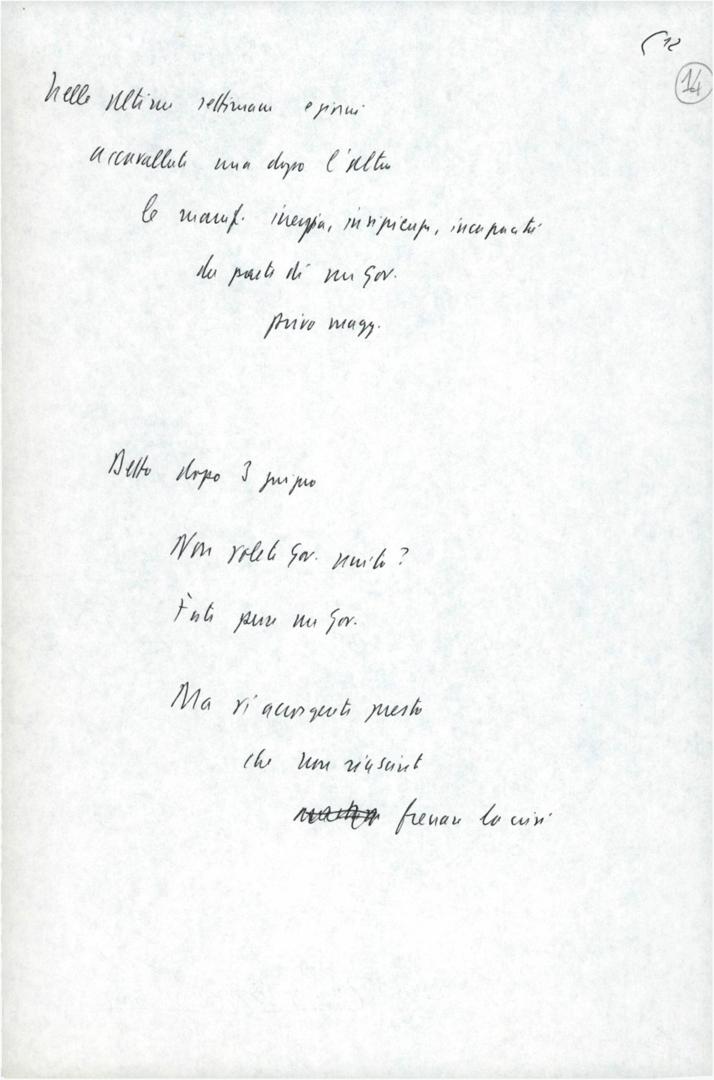 12
14
Nelle ultime settimane e giorni
accavallate una dopo l'altra
le manif. inerzia, insipienza, incapacità
da parte di un Gov.
privo magg.
Detto dopo 3 giugno
Non volete Gov. unità?
Fate pure un Gov.
Ma vi accorgerete presto
che non riuscirete
frenare la crisi